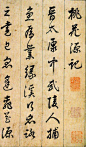 桃花源記
晉太原中武陵人捕
魚為業緣溪行忘路
之遠近忽逢桃花